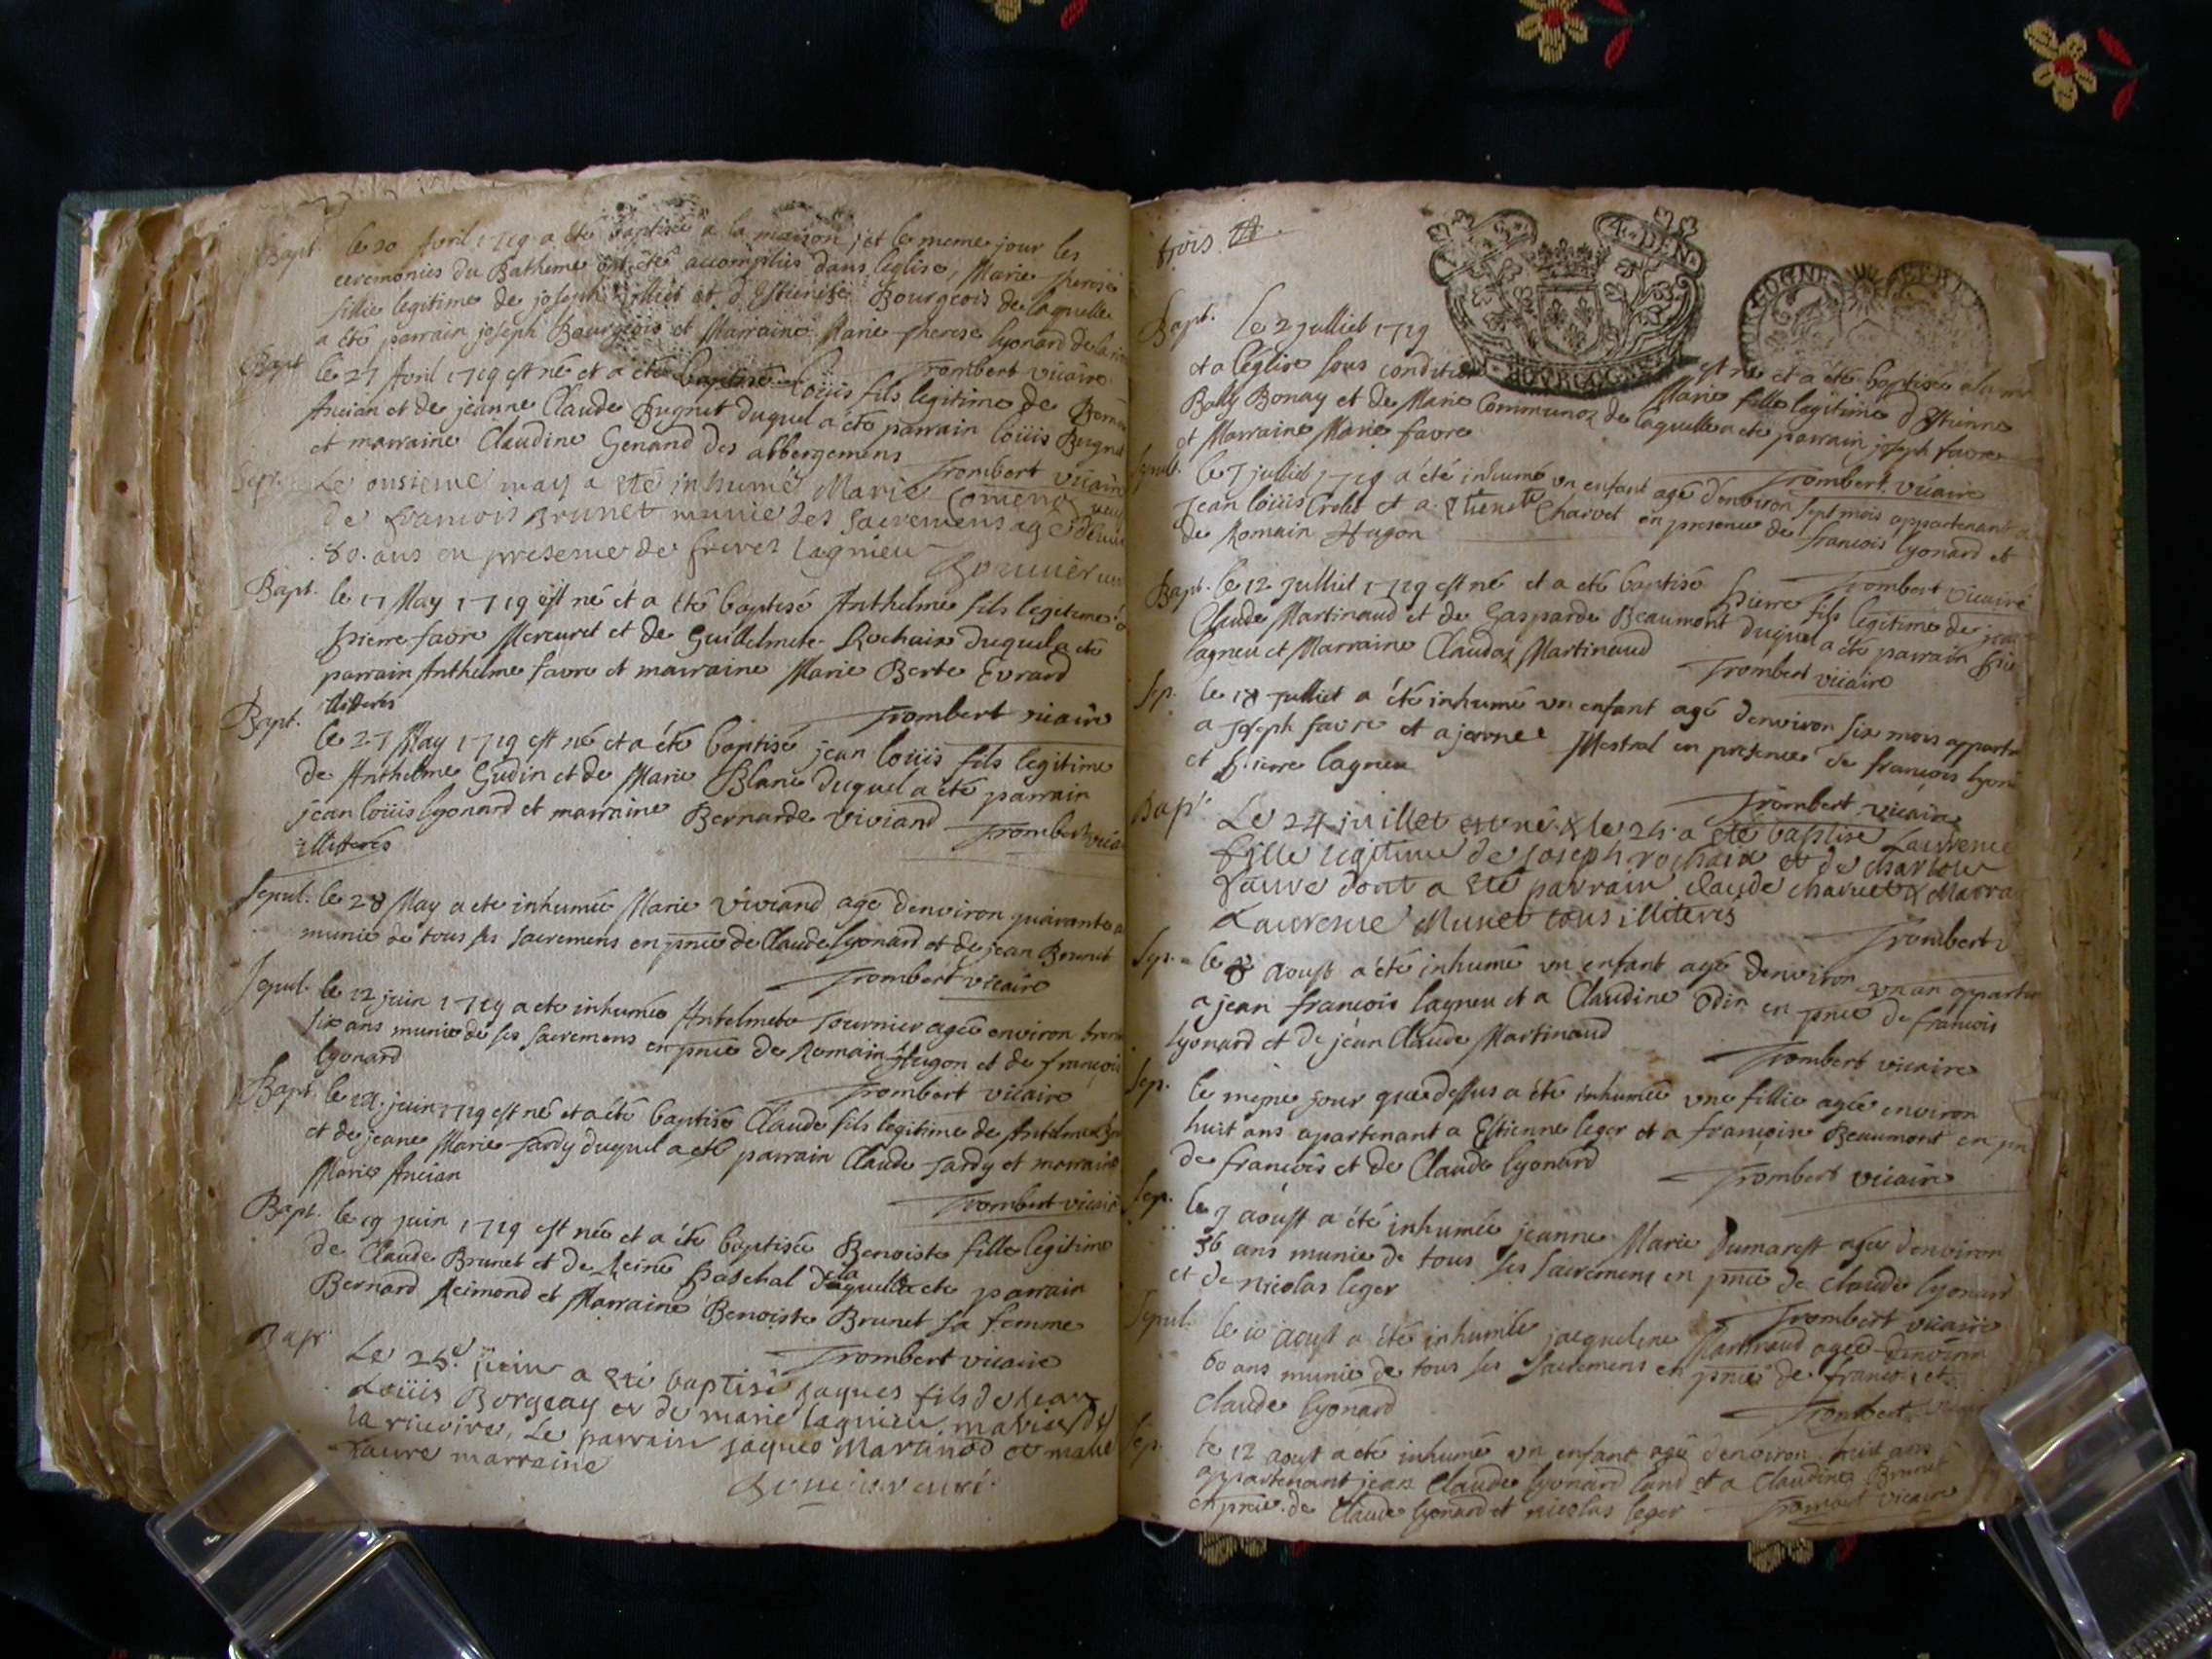 Bapt. le 20 Avril 1719 a été baptisée a la maison, et le meme jour les
ceremonies du Batheme ont été accomplies dans l'eglise, Marie Therese
fillie legitime de joseph et d'Estiennise Bourgeois de laquelle
a été parrain joseph Bourgeois et Marraine Marie Therese lyonard
Trombert vicaire
Bapt. le 27 Avril 1719 est né et a été baptisé loüis fils legitime de
Ancian et de jeanne Claude Bugnet duquel a été parrain loüis Bugnet
et marraine Claudine Genand des abbergemens
Trombert vicaire
Sep. Le onsieme may a été inhumé Marie
de francois Brunet munie des sacremens
80. ans en presence de freres lagnieu
Bapt. le 17 May 1719 est né et a été baptisé Anthelme fils legitime
pierre favre Mercuret et de Guillelmete Rochaix duquel a été
parrain Anthelme favre et marraine Marie Berte Evrard
illiterés
Trombert vicaire
Bapt. le 27 May 1719 est né et a été baptisé jean loüis fils legitime
de Anthelme Gudin et de Marie Blanc duquel a été parrain
jean loüis lyonard et marraine Bernarde Viviand
illiterés Trombert vica
Sepul. le 28 May a eté inhumée Marie Viviand agé denviron quarante
munie de tous ses sacremens en pnce de Claude lyonard et de jean Brunet
Trombert vicaire
Sepul. le 12 juin 1719 a eté inhumée Antelmete Tournier agée environ
six ans munie de ses sacremens en pnce de Romain Hugon et de françois
lyonard
Trombert vicaire
Bapt. le juin 1719 est né et a été baptisé Claude fils legitime de Antelme
et de jeane Marie Tardy duquel a eté parrain Claude Tardy et marraine
Marie Ancian
Trombert vicaire
Bapt. le 19 juin 1719 est née et a été baptisée Benoiste fille legitime
de Claude Brunet et de Reine paschal de laquelle a eté parrain
Bernard Reimond et Marraine Benoiste Brunet sa femme
Trombert vicaire
Bapt. Le 25e. juin a été baptisé jaques fils de jean
Loüis Borgeay et de marie lagnieu,
la riuoire, Le parrain jaques et marie
favre marraine
trois
4. DEN.
BOURGOGNE
Bapt. le 2 julliet 1719 est née et a été baptisée
et a l'église sous condition Marie fille legitime d'Estienne
Bally Bonay et de Marie Communoz de laquelle a eté parrain joseph favre
et Marraine Marie favre
Trombert vicaire
Sepul. le 7 julliet 1719 a été inhumé un enfant agé denviron sept mois appartenant a
jean loüis Crolet et a Etienete Charvet en presence de francois lyonard et
de Romain Hugon
Trombert vicaire
Bapt. le 12 julliet 1719 est né et a eté baptisé pierre fils legitime de jean
Claude Martinaud et de Gasparde Beaumont duquel a été parrain
lagneu et Marraine Claudaz Martinaud
Trombert vicaire
Sep. le 18 julliet a été inhumé un enfant agé denviron six mois
a joseph favre et a jeanne Mestral en presence de francois
et pierre lagneu
Trombert vicaire
Bapt. Le 24 juillet est né & le 25 a été baptisé Laurence
fille legitime de joseph rochaix et de
favre dont a été parrain claude charvet & Marra
Laurence Munet tous illiterés
Trombert
Sep. le 8 aoust a été inhumé un enfant agé denviron un an
a jean francois lagneu et a Claudine Odin en pnce de francois
lyonard et de jean Claude Martinaud
Trombert vicaire
Sep. le meme jour que dessus a été inhumée une fillie agée environ
huit ans apartenant a Estienne leger et a francoise Beaumont en pn
de francois et de Claude lyonard
Trombert vicaire
Sep. le 9 aoust a été inhumée jeanne Marie Dumarest agée denviron
36 ans munie de tous ses sacremens en pnce de claude lyonard
et de nicolas leger
Trombert vicaire
Sepul. le 10 aoust a été inhumée jacqueline Martinaud agée denviron
60 ans munie de tous ses sacremens en pnce de francois et
claude lyonard
Trombert
Sep. le 12 aout a eté inhumé un enfant agé denviron huit ans
appartenant jean Claude lyonard et a Claudine Brunet
en pnce de Claude lyonard et nicolas leger
Trombert vicaire